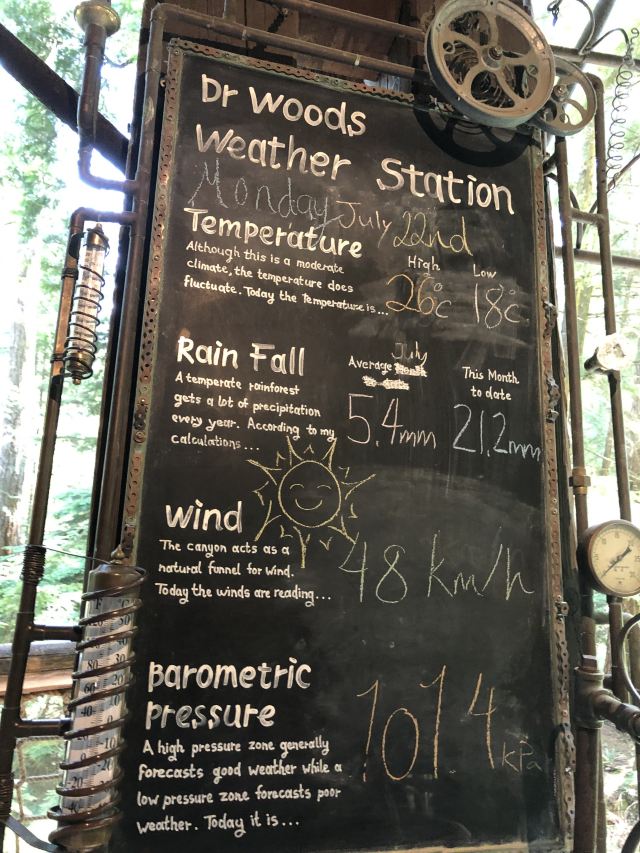 Dr Woods
Weather Station
Monday July 22nd
Temperature
Although this is a moderate
climate, the temperature does
fluctuate. Today the Temperature is...
High Low
26°c 18°c
Rain Fall
A temperate rainforest
gets a lot of precipitation
every year. According to my
calculations...
July
Average
5.4mm
This Month
to date
21.2mm
Wind
The canyon acts as a
natural funnel for wind.
Today the winds are reading...
48 km/h
Barometric
Pressure
A high pressure zone generally
forecasts good weather while a
low pressure zone forecasts poor
weather. Today it is...
101.4 kPa